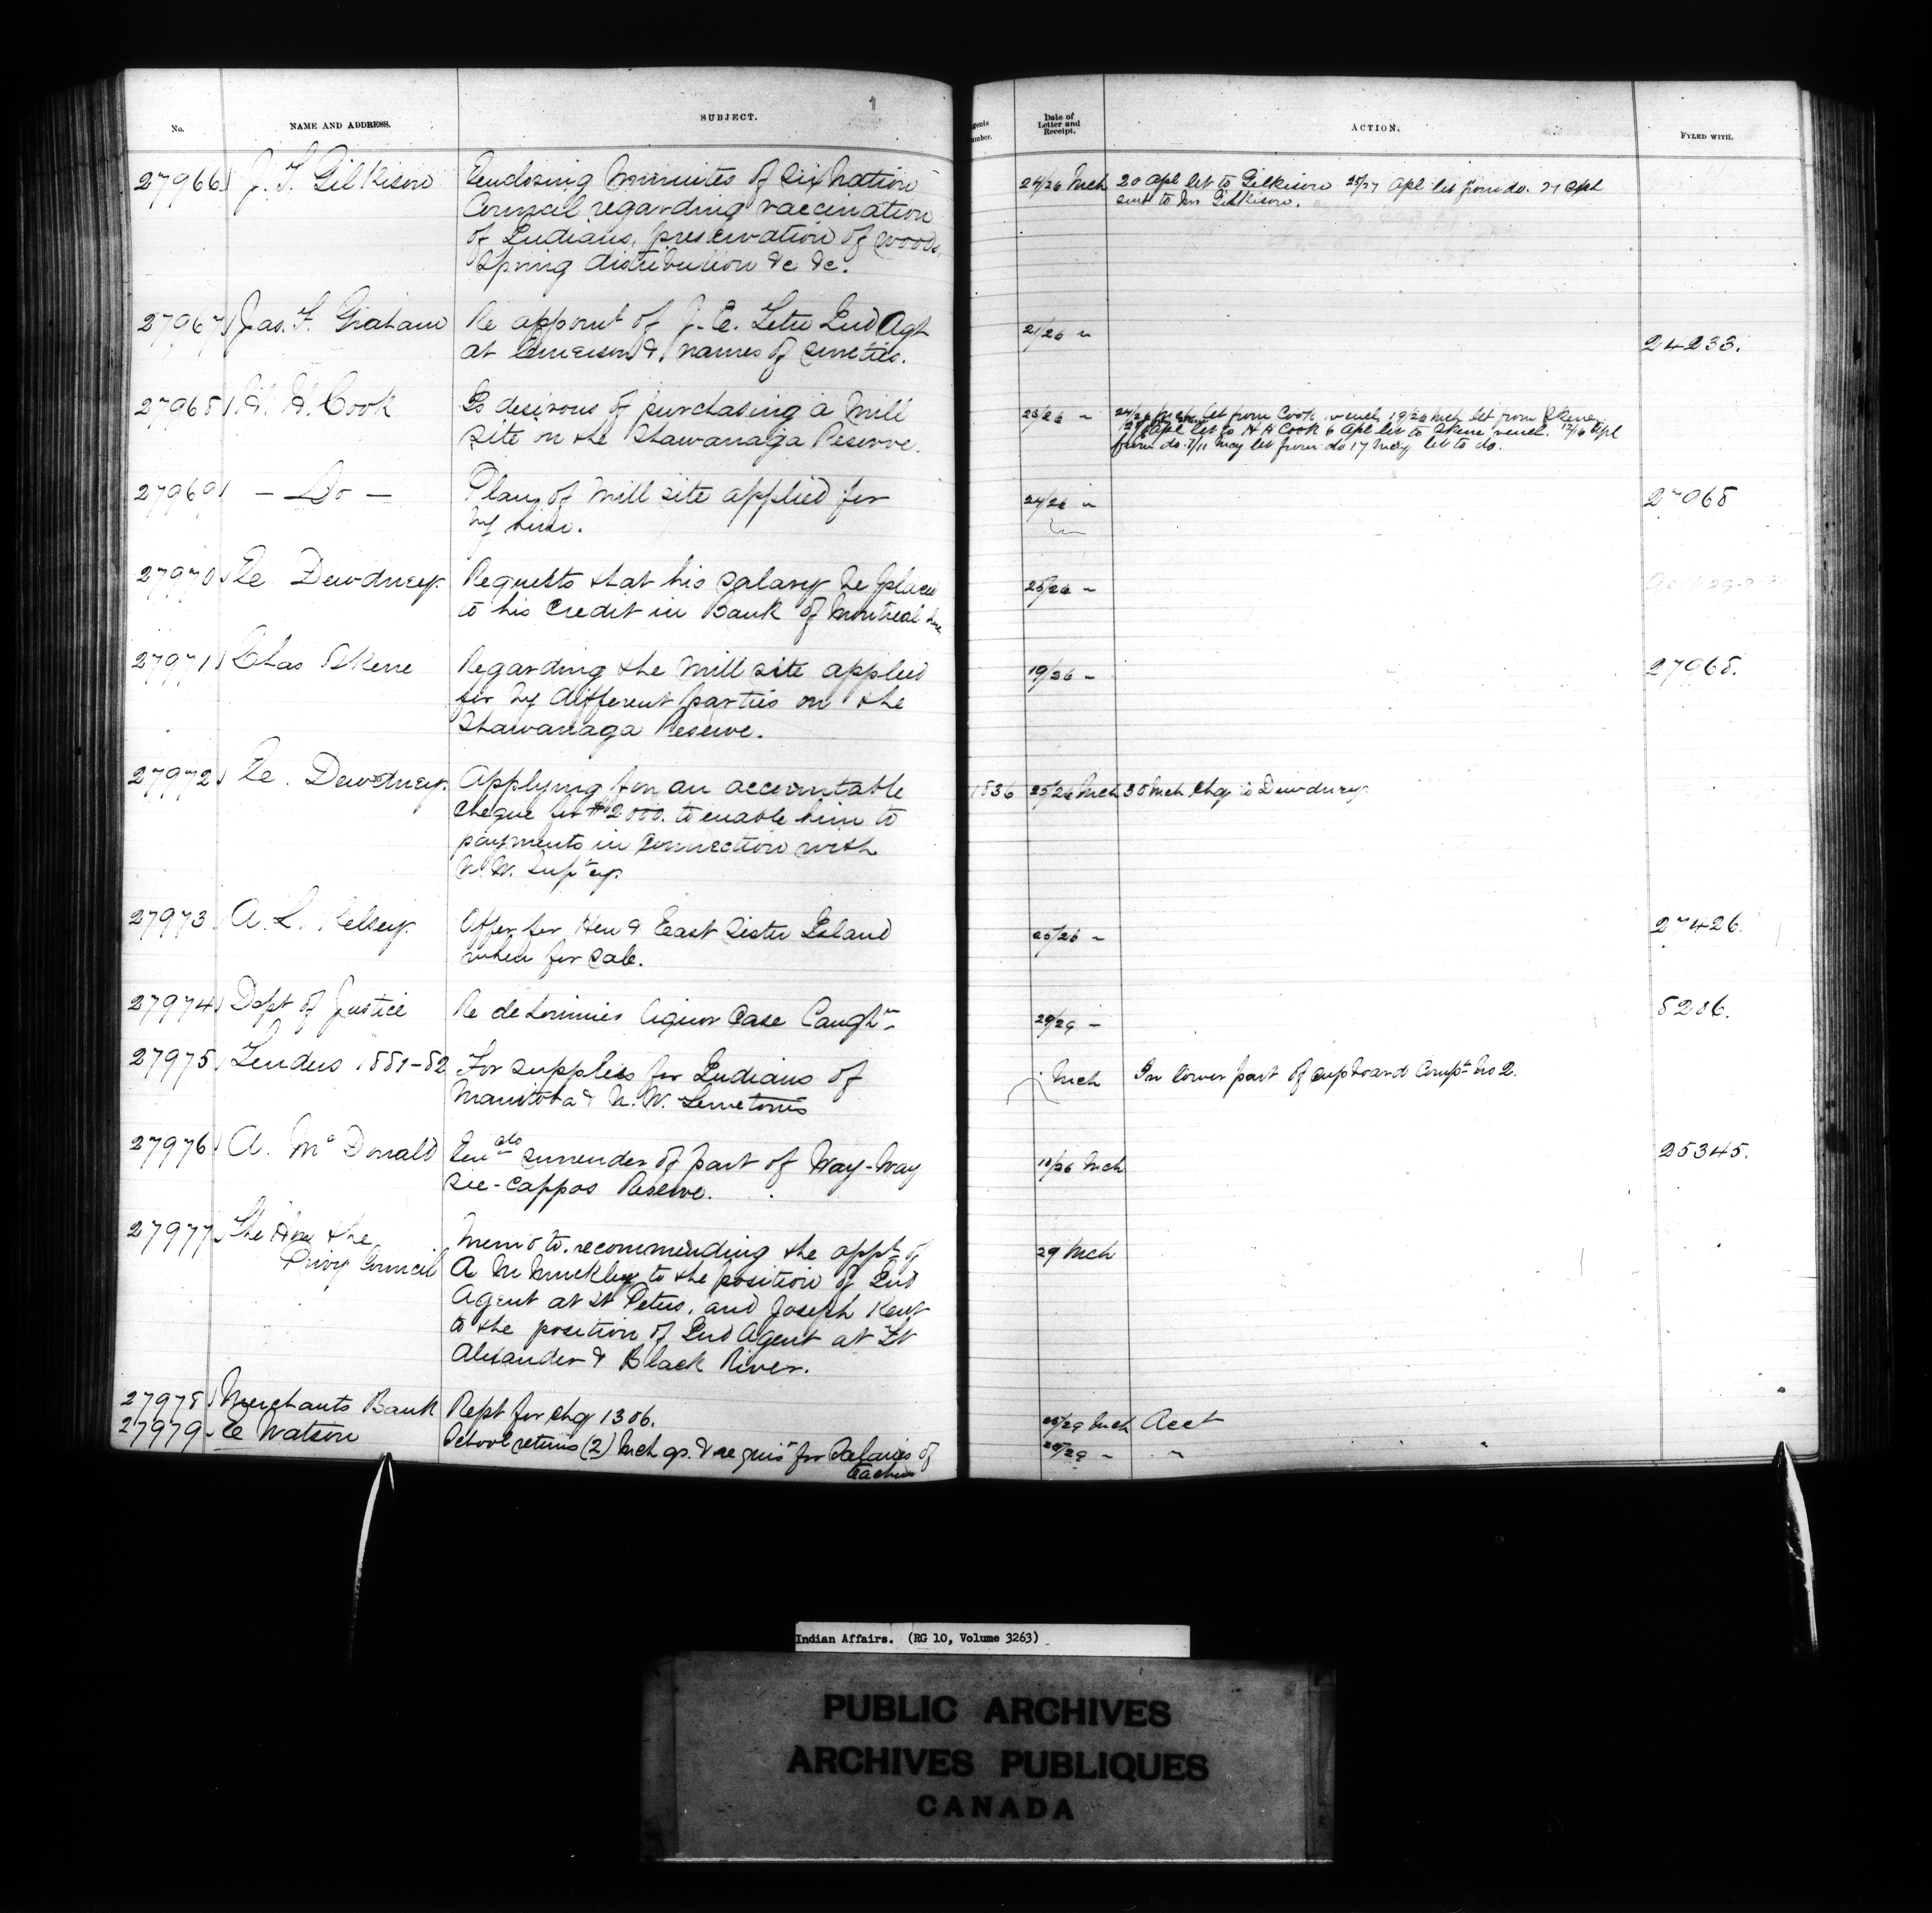 No. NAME AND ADDRESS. SUBJECT. Agents Number. Date of Letter and Receipt. ACTION. FYLED WITH.
27966 J. T. Gilkison Enclosing Minutes of Six Nation 24/26 Mch 20 Apl let to Gilkison 25/27 Apl let from do. 27 Apl
Council regarding vaccination sent to Mr Gilkison.
of Indians, preservation of woods,
Spring distribution &c &c.
27967 Jas. F. Graham Re appoint of J. E. Tetu Ind Agt 21/26 "
at Emerson & names of sureties. 24233.
27968 H. H. Cook Is desirous of purchasing a Mill 25/26 " 24/26 Mch let from Cook 19/26 Mch let from Skene
Site on the Shawanaga Reserve. Apl let to H H Cook 6 Apl let to Skene 12/16 Apl
from do. 7/11 May let from do 17 May let to do.
27969 — Do — Plan of Mill site applied for 24/26 " 27968
by him.
27970 E. Dewdney Requests that his salary be placed 25/26 "
to his Credit in Bank of Montreal here
27971 Chas Skene Regarding the Mill site applied 19/26 " 27968.
for by different parties on the
Shawanaga Reserve.
27972 E. Dewdney. Applying for an accountable 1836 25/26 Mch 30 Mch Chq to Dewdney
cheque for $2000. to enable him to
payments in connection with
N.W. Supt'cy.
27973 A. L. Kelsey. Offer for Hen & East Sister Island 25/26 " 27426.
when for sale.
27974 Dept of Justice Re deLorimier liquor Case Caugh'a 29/29 " 8286.
27975 Tenders 1881-82 For supplies for Indians of Mch In lower part of cupboard Compt No 2.
Manitoba & N.W. Territories
27976 A. McDonald Surrender of part of Way-Way 18/26 Mch 25345.
sie-cappos Reserve.
27977 The Hon the Memo to. recommending the appt of 29 Mch
Privy Council A M Muckle to the position of Ind
Agent at St Peters, and Joseph Kent
to the position of Ind Agent at Ft
Alexander & Black River.
27978 Merchants Bank Rept for chq 1306. 28/29 Mch Acct
27979 E Watson School returns (2) Mch qr. & requis'n for Salaries of 28/29 " "
teachers
Indian Affairs. (RG 10, Volume 3263)
PUBLIC ARCHIVES
ARCHIVES PUBLIQUES
CANADA